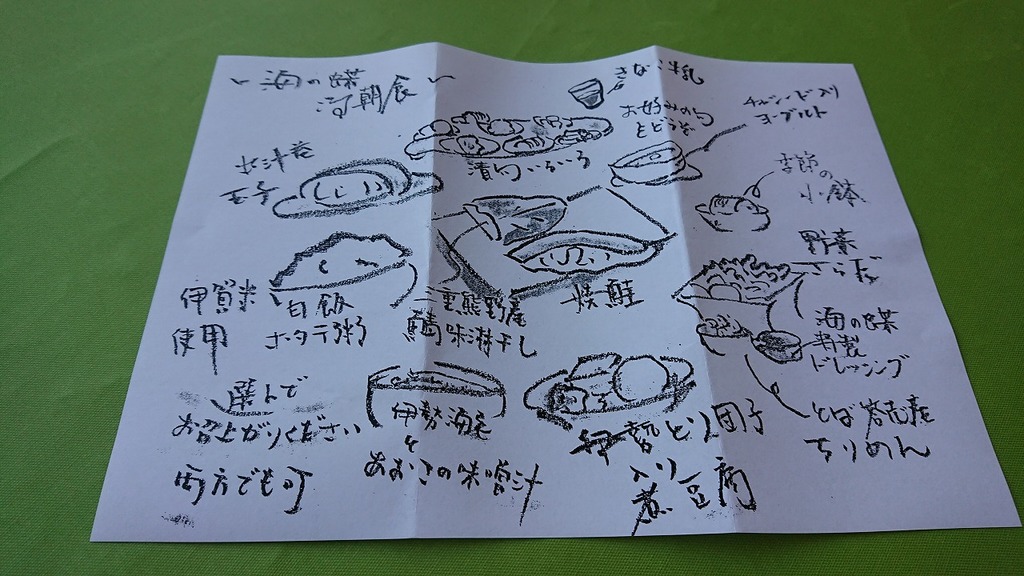 ～海の蝶
の朝食～
きなこ牛乳
お好みのものを
どうぞ
チアシード入り
ヨーグルト
漬物いろいろ
出汁巻
玉子
季節の
小鉢
野菜
さらだ
伊賀米
使用
白飯
ホタテ粥
三重熊野産
鯖味淋干し
焼鮭
海の蝶
特製
ドレッシング
選んで
お召上がりください
両方でも可
伊勢海老
と
あおさの味噌汁
伊勢とり団子
入り
煮豆腐
とば答志産
ちりめん